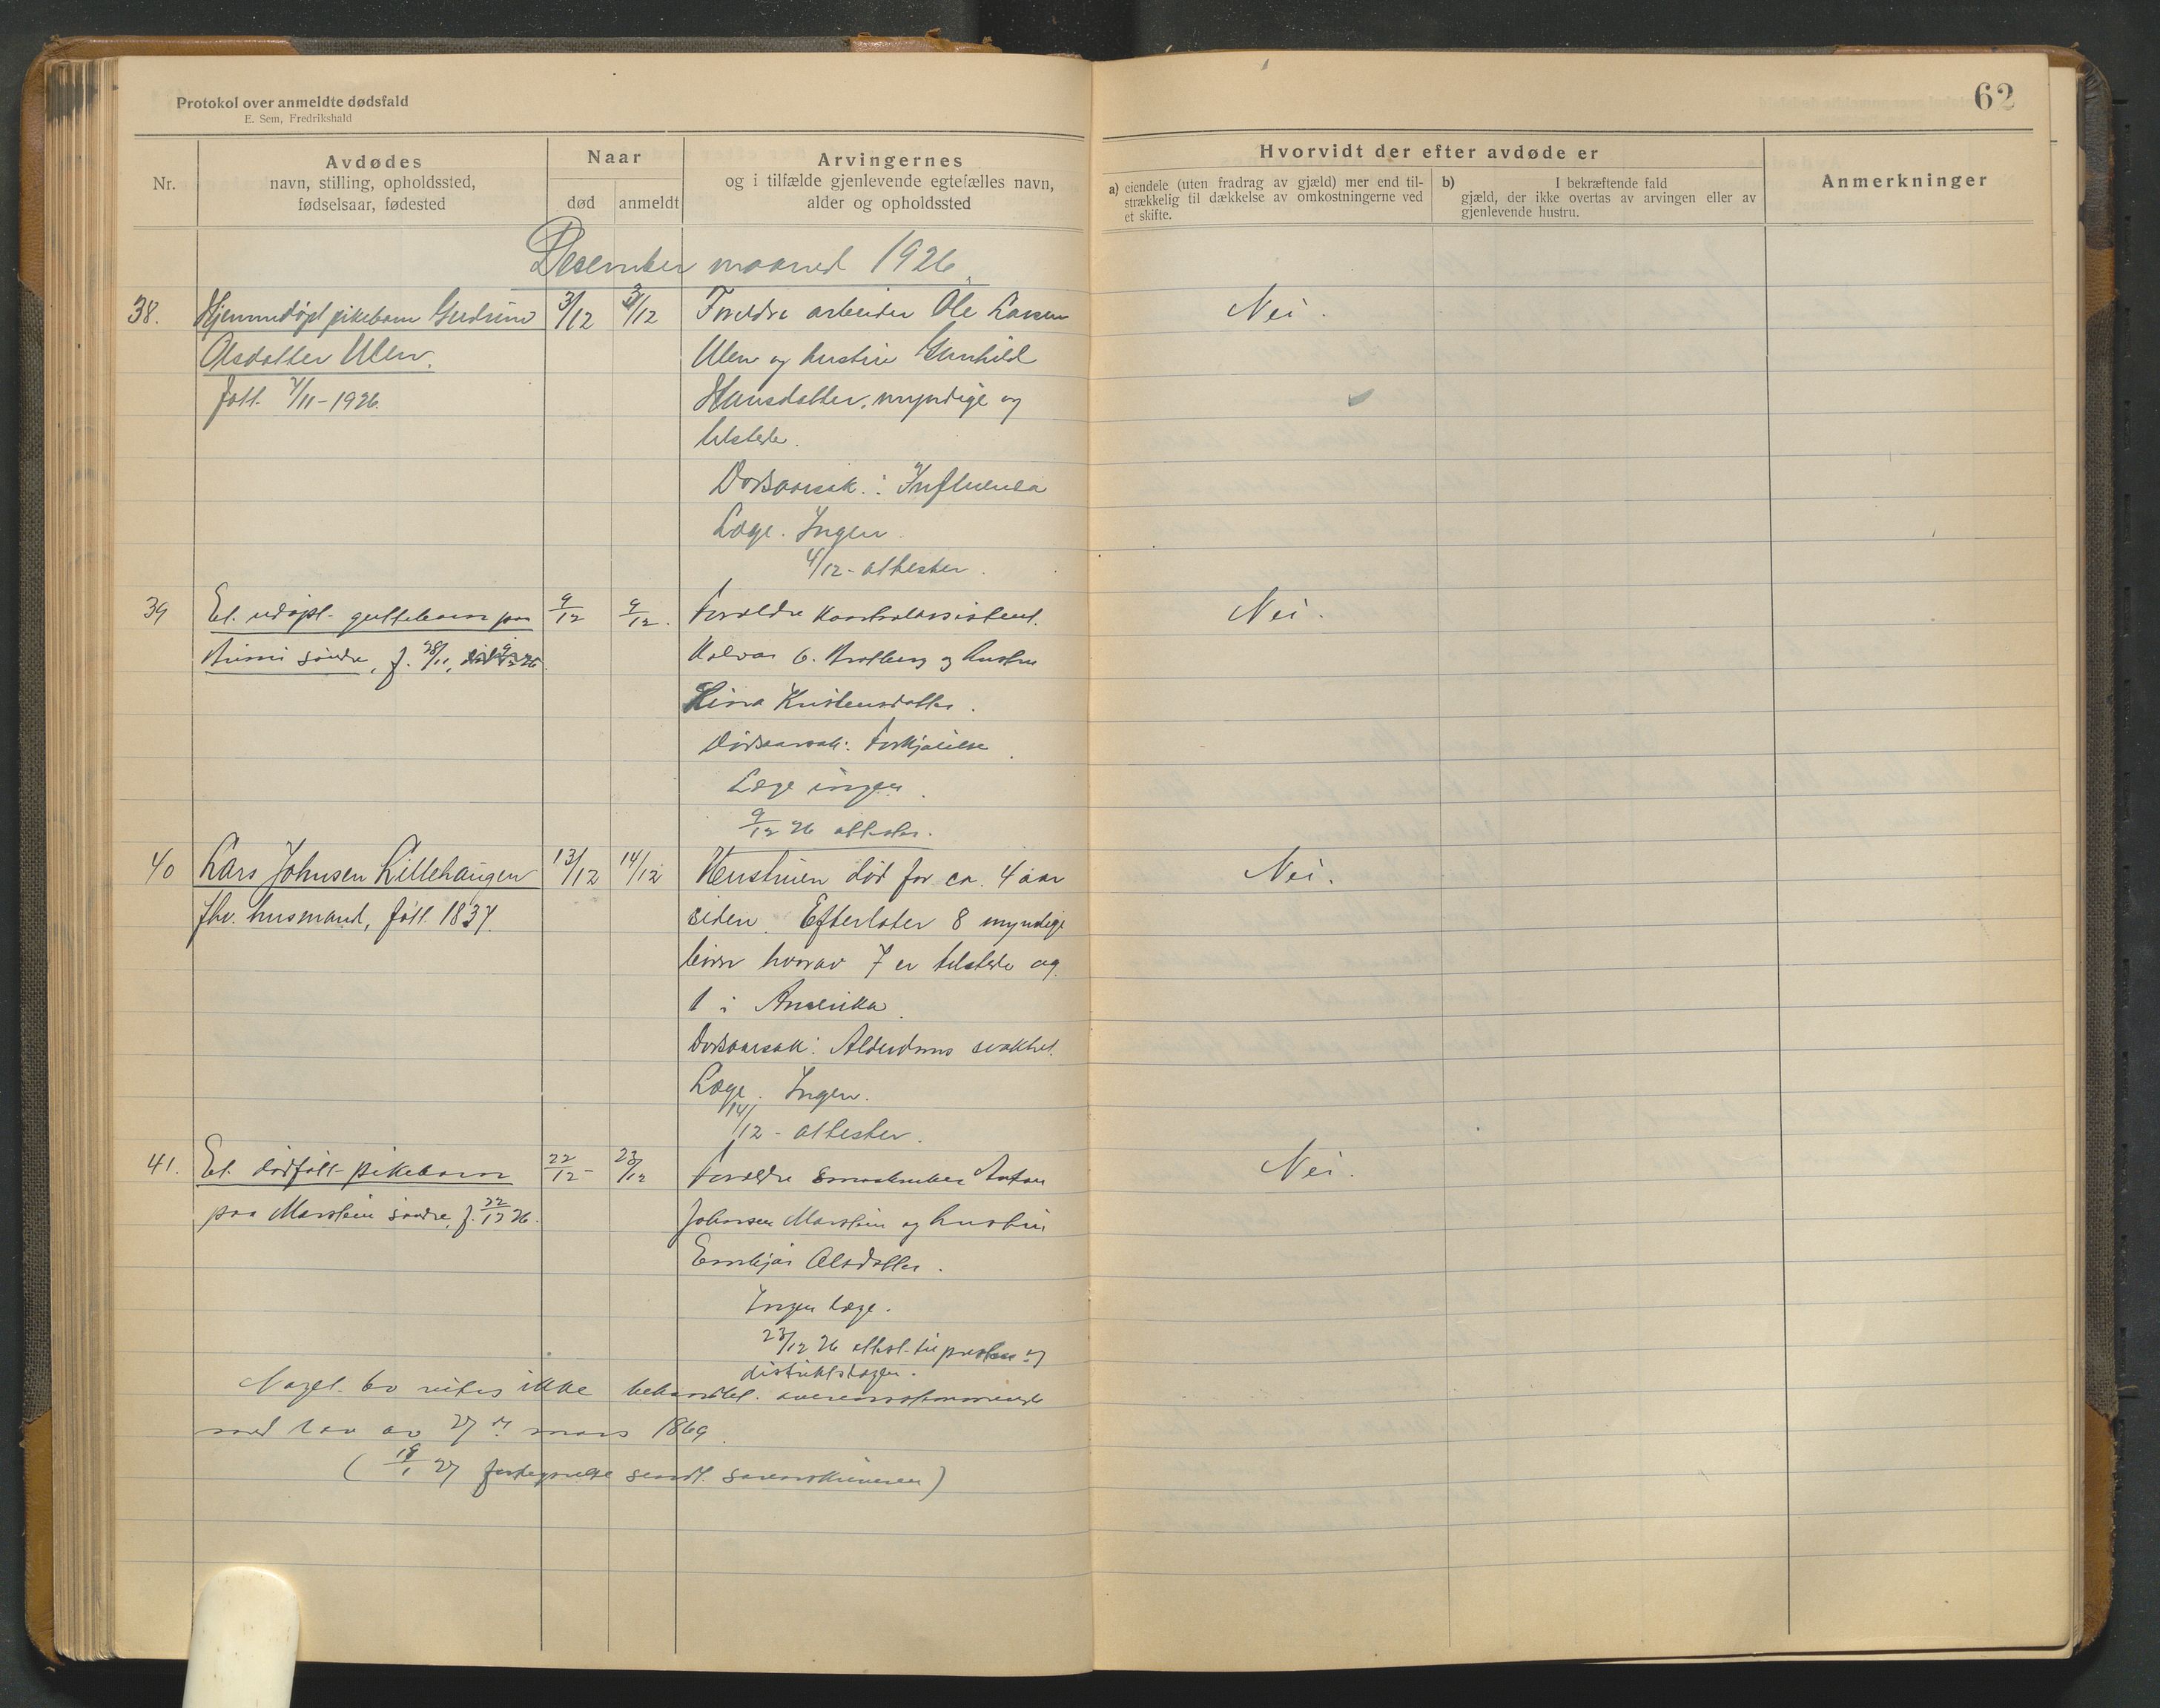 Protokol over anmeldte dødsfald
E. Sem, Fredrikshald
62
Nr.
Avdødes
navn, stilling, opholdssted,
fødselsaar, fødested
Naar
død
anmeldt
Arvingernes
og i tilfælde gjenlevende egtefælles navn,
alder og opholdssted
Hvorvidt der efter avdøde er
a) eiendele (uten fradrag av gjæld) mer end til-
strækkelig til dækkelse av omkostningerne ved
et skifte.
b) I bekræftende fald
gjæld, der ikke overtas av arvingen eller av
gjenlevende hustru.
Anmerkninger
Desember maaned 1926
38. Hjemmedøpt pikebarn Gudrun 3/12 3/12 Foreldre arbeider Ole Larsen Nei.
Olsdatter Ulen. Ulen og hustru Gunhild
født 7/11-1926. Hansdatter, myndige og
tilstede.
Dødsaarsak: Influensa
Læge. Ingen.
4/12 - attester.
39 Et. udøpt guttebarn paa 9/12 9/12. Forældre kontrolassistent Nei.
søndre, f. 28/11, død 9/12 26. Halvor G. og hustru
Kristensdatter.
Dødsaarsak: Forkjølelse.
Læge ingen.
9/12 26 attester.
40 Lars Johnsen Lillehaugen 13/12 14/12 Hustruen død for ca. 4 aar Nei.
fhv. husmand, født 1837. siden. Efterlater 8 myndige
børn hvorav 7 er tilstede og
1 i Amerika.
Dødsaarsak: Alderdoms svakhet.
Læge. Ingen.
14/12 - attester.
41. Et. dødfødt pikebarn 22/12 - 23/12 Forældre smaabruker Anton Nei.
paa Marstein søndre, f. 22/12 26. Johnsen Marstein og hustru
Olsdatter.
Ingen læge.
23/12 26 attest til presten og
distriktslægen.
Noget bo vites ikke behandlet overensstemmende
med lov av 27de mars 1869.
( 18/1 27 fortegnelse sendt sorenskriveren)